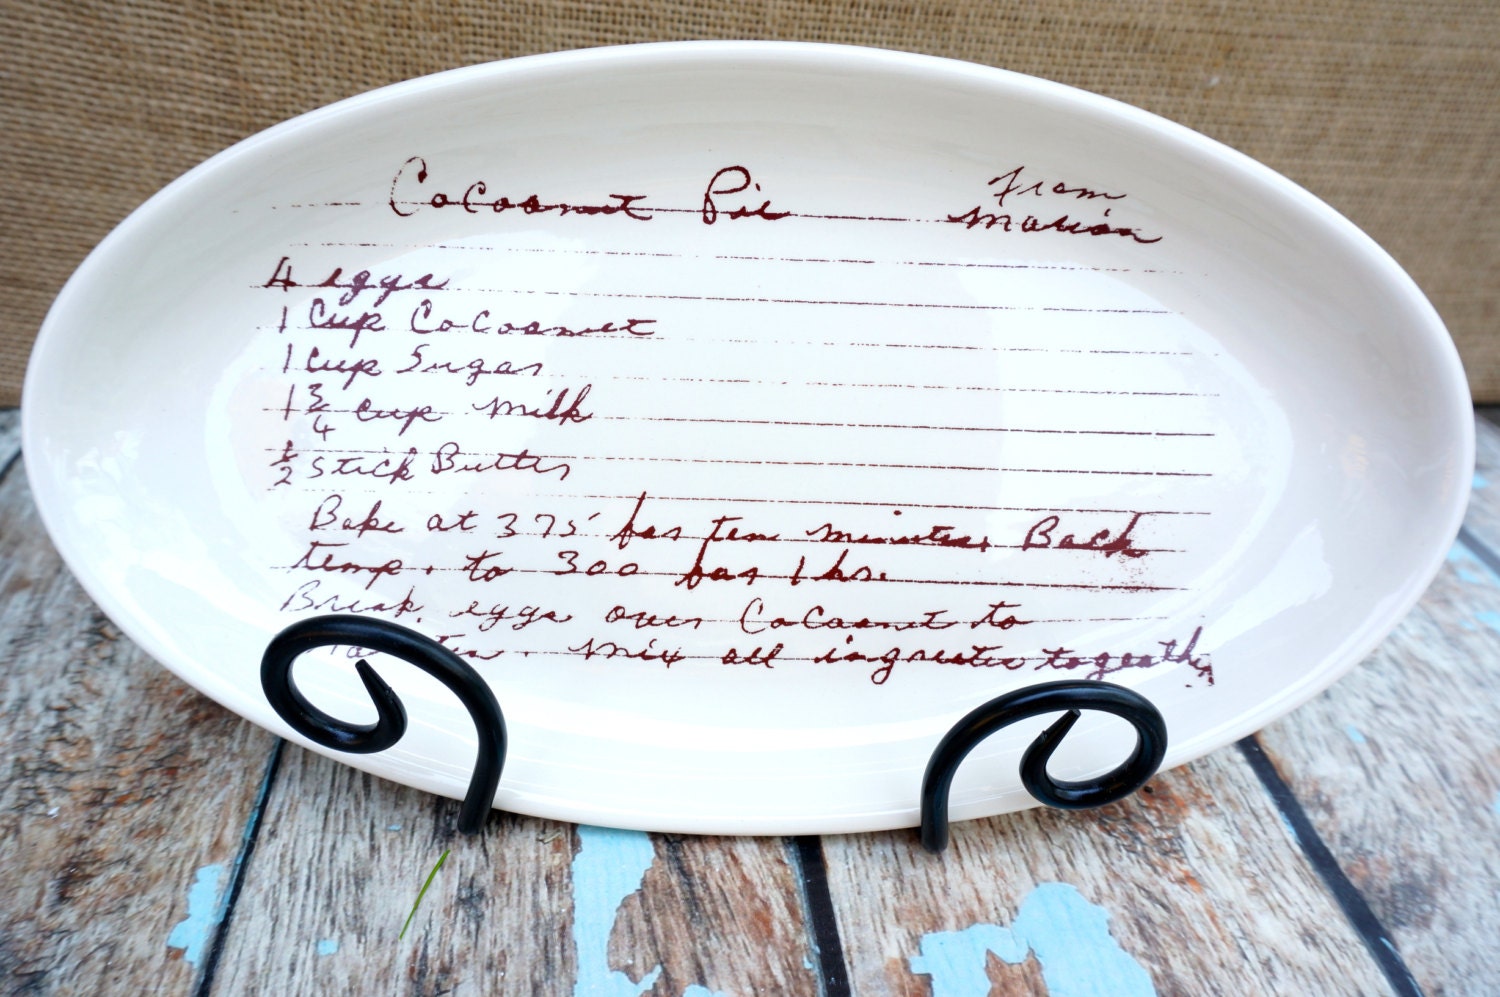 Cocoanut Pie
From
Marion
4 eggs
1 Cup Cocoanut
1 Cup Sugar
1 3/4 cup Milk
1/2 Stick Butter
Bake at 375° for ten minutes. Back
temp. to 300 for 1 hr.
Break eggs over Cocoanut to
. Mix all ingreates togeather